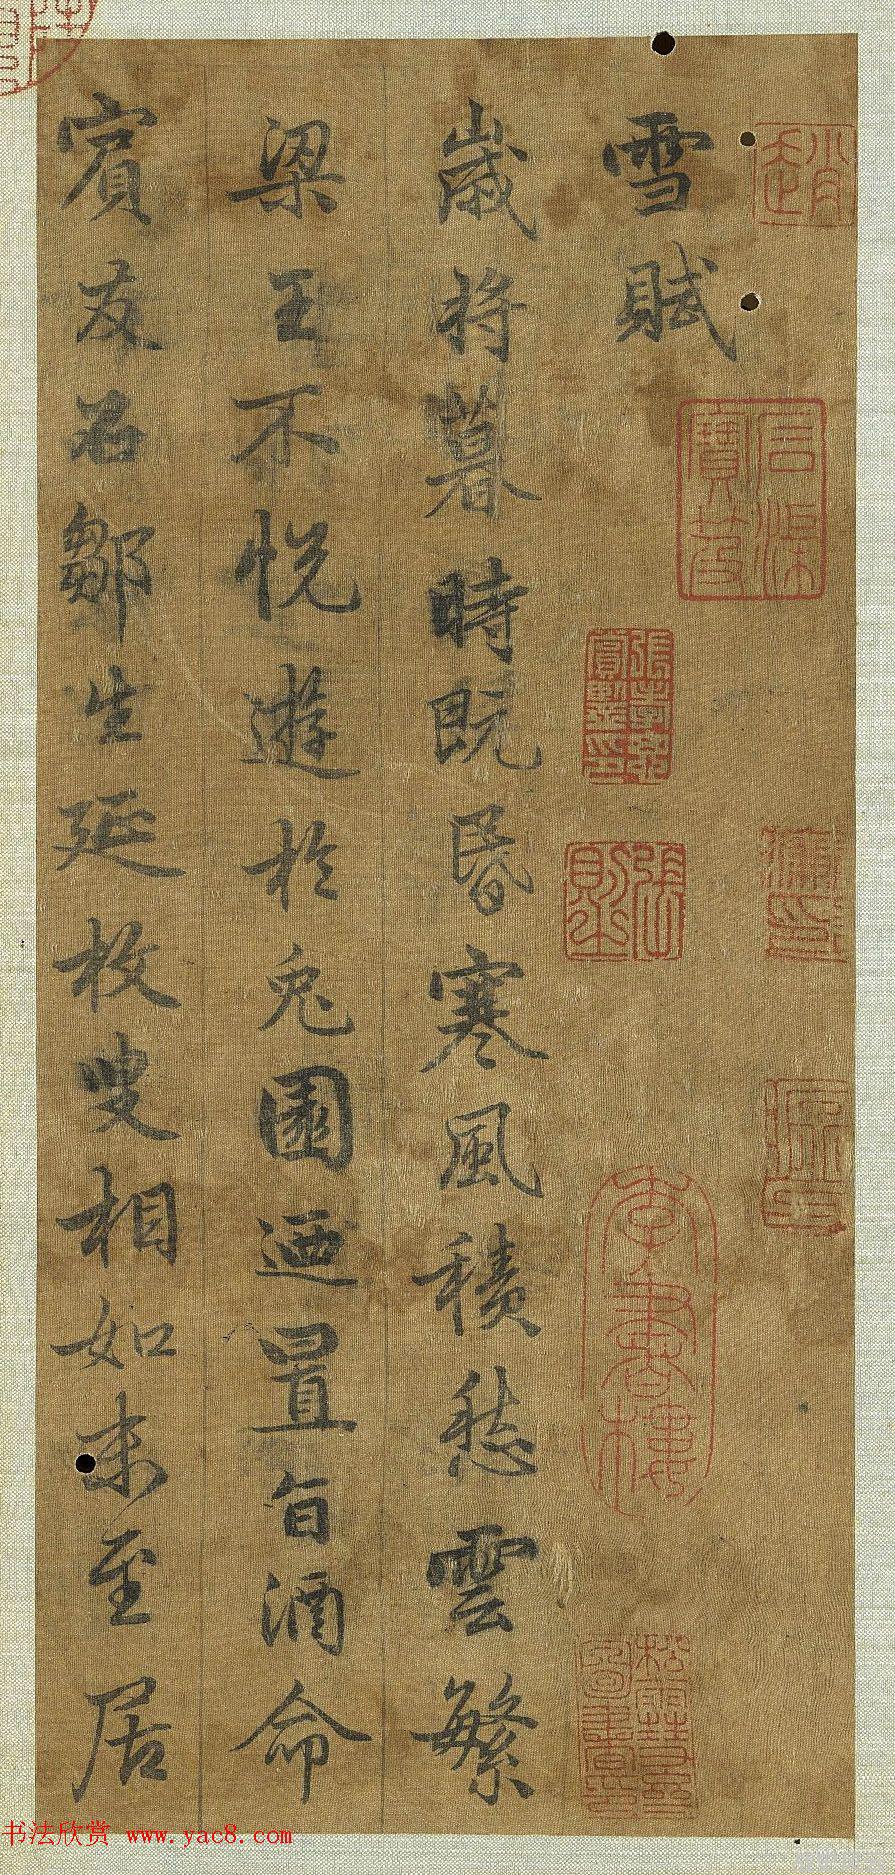 雪賦
歲將暮時既昏寒風積愁雲繁
梁王不悅遊於兎園迺置旨酒命
賓友召鄒生延枚叟相如末至居
張則之
書法欣赏 www.yac8.com